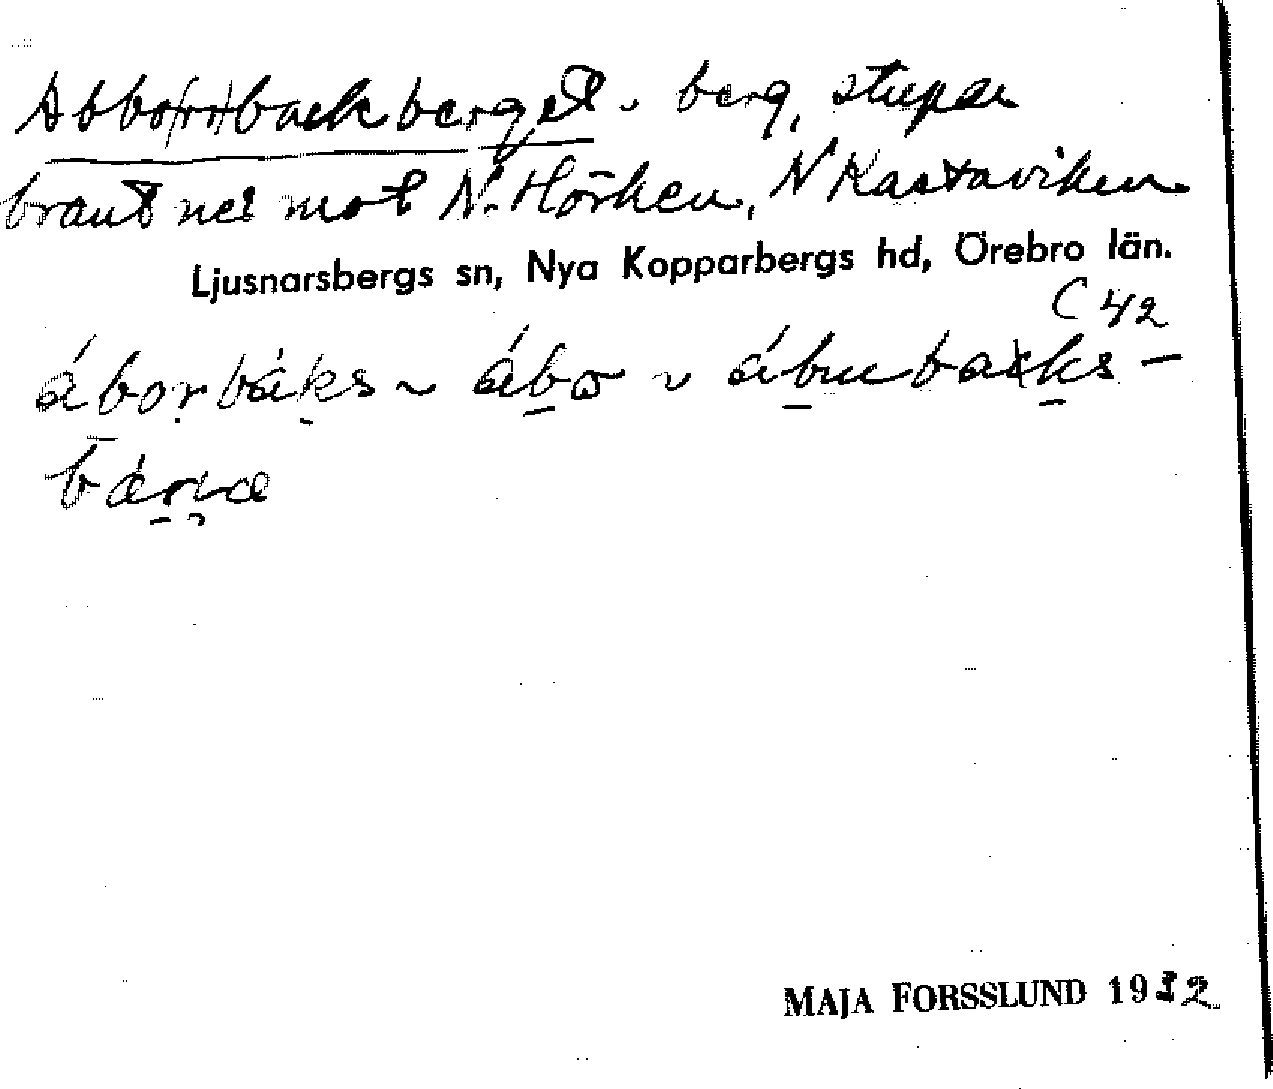 Abbo(rr)backberget. berg, stupar
brant ned mot N. Hörken, N Kastaviken
Ljusnarsbergs sn, Nya Kopparbergs hd, Örebro län.
C 42
áborbáks ~ ábo ~ ábubaks-
bærjæ
MAJA FORSSLUND 1932